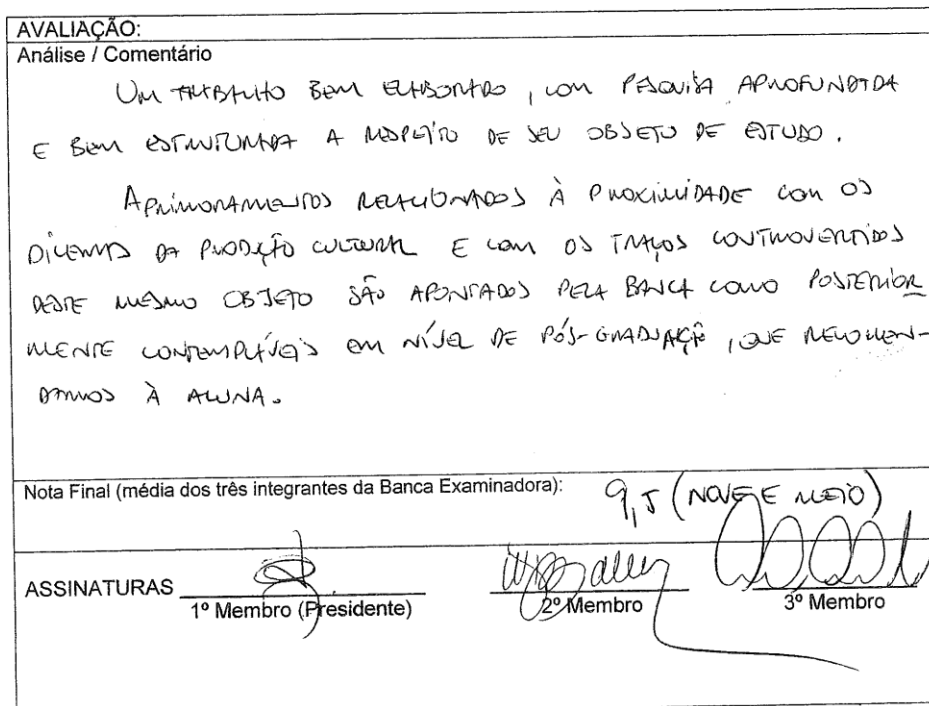 AVALIAÇÃO:
Análise / Comentário
UM TRABALHO BEM ELABORADO, COM PESQUISA APROFUNDADA
E BEM ESTRUTURADA A RESPEITO DE SEU OBJETO DE ESTUDO.
APRIMORAMENTOS RELACIONADOS À PROXIMIDADE COM OS
DILEMAS DA PRODUÇÃO CULTURAL E COM OS TRAÇOS CONTROVERTIDOS
DESTE MESMO OBJETO SÃO APONTADOS PELA BANCA COMO POSTERIOR
MENTE CONTEMPLÁVEIS EM NÍVEL DE PÓS-GRADUAÇÃO, QUE RECOMEN-
DAMOS À ALUNA.
Nota Final (média dos três integrantes da Banca Examinadora): 9,5 (NOVE E MEIO)
ASSINATURAS
1º Membro (Presidente) 2º Membro 3º Membro